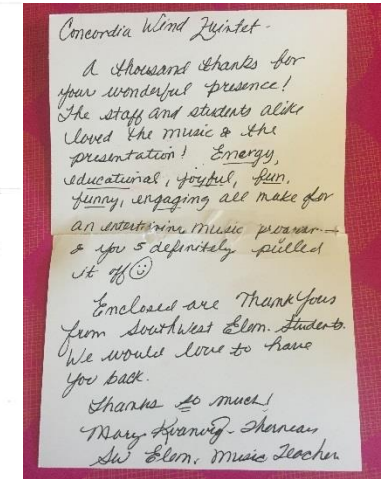 Concordia Wind Quintet -
A thousand thanks for
your wonderful presence!
The staff and students alike
loved the music & the
presentation! Energy,
educational, joyful, fun,
funny, engaging all make for
an entertaining music program →
& you 5 definitely pulled
it off ☺
Enclosed are Thank Yous
from SouthWest Elem. Students.
We would love to have
you back.
Thanks so much!
Mary Kvanvig-
SW Elem. Music Teacher